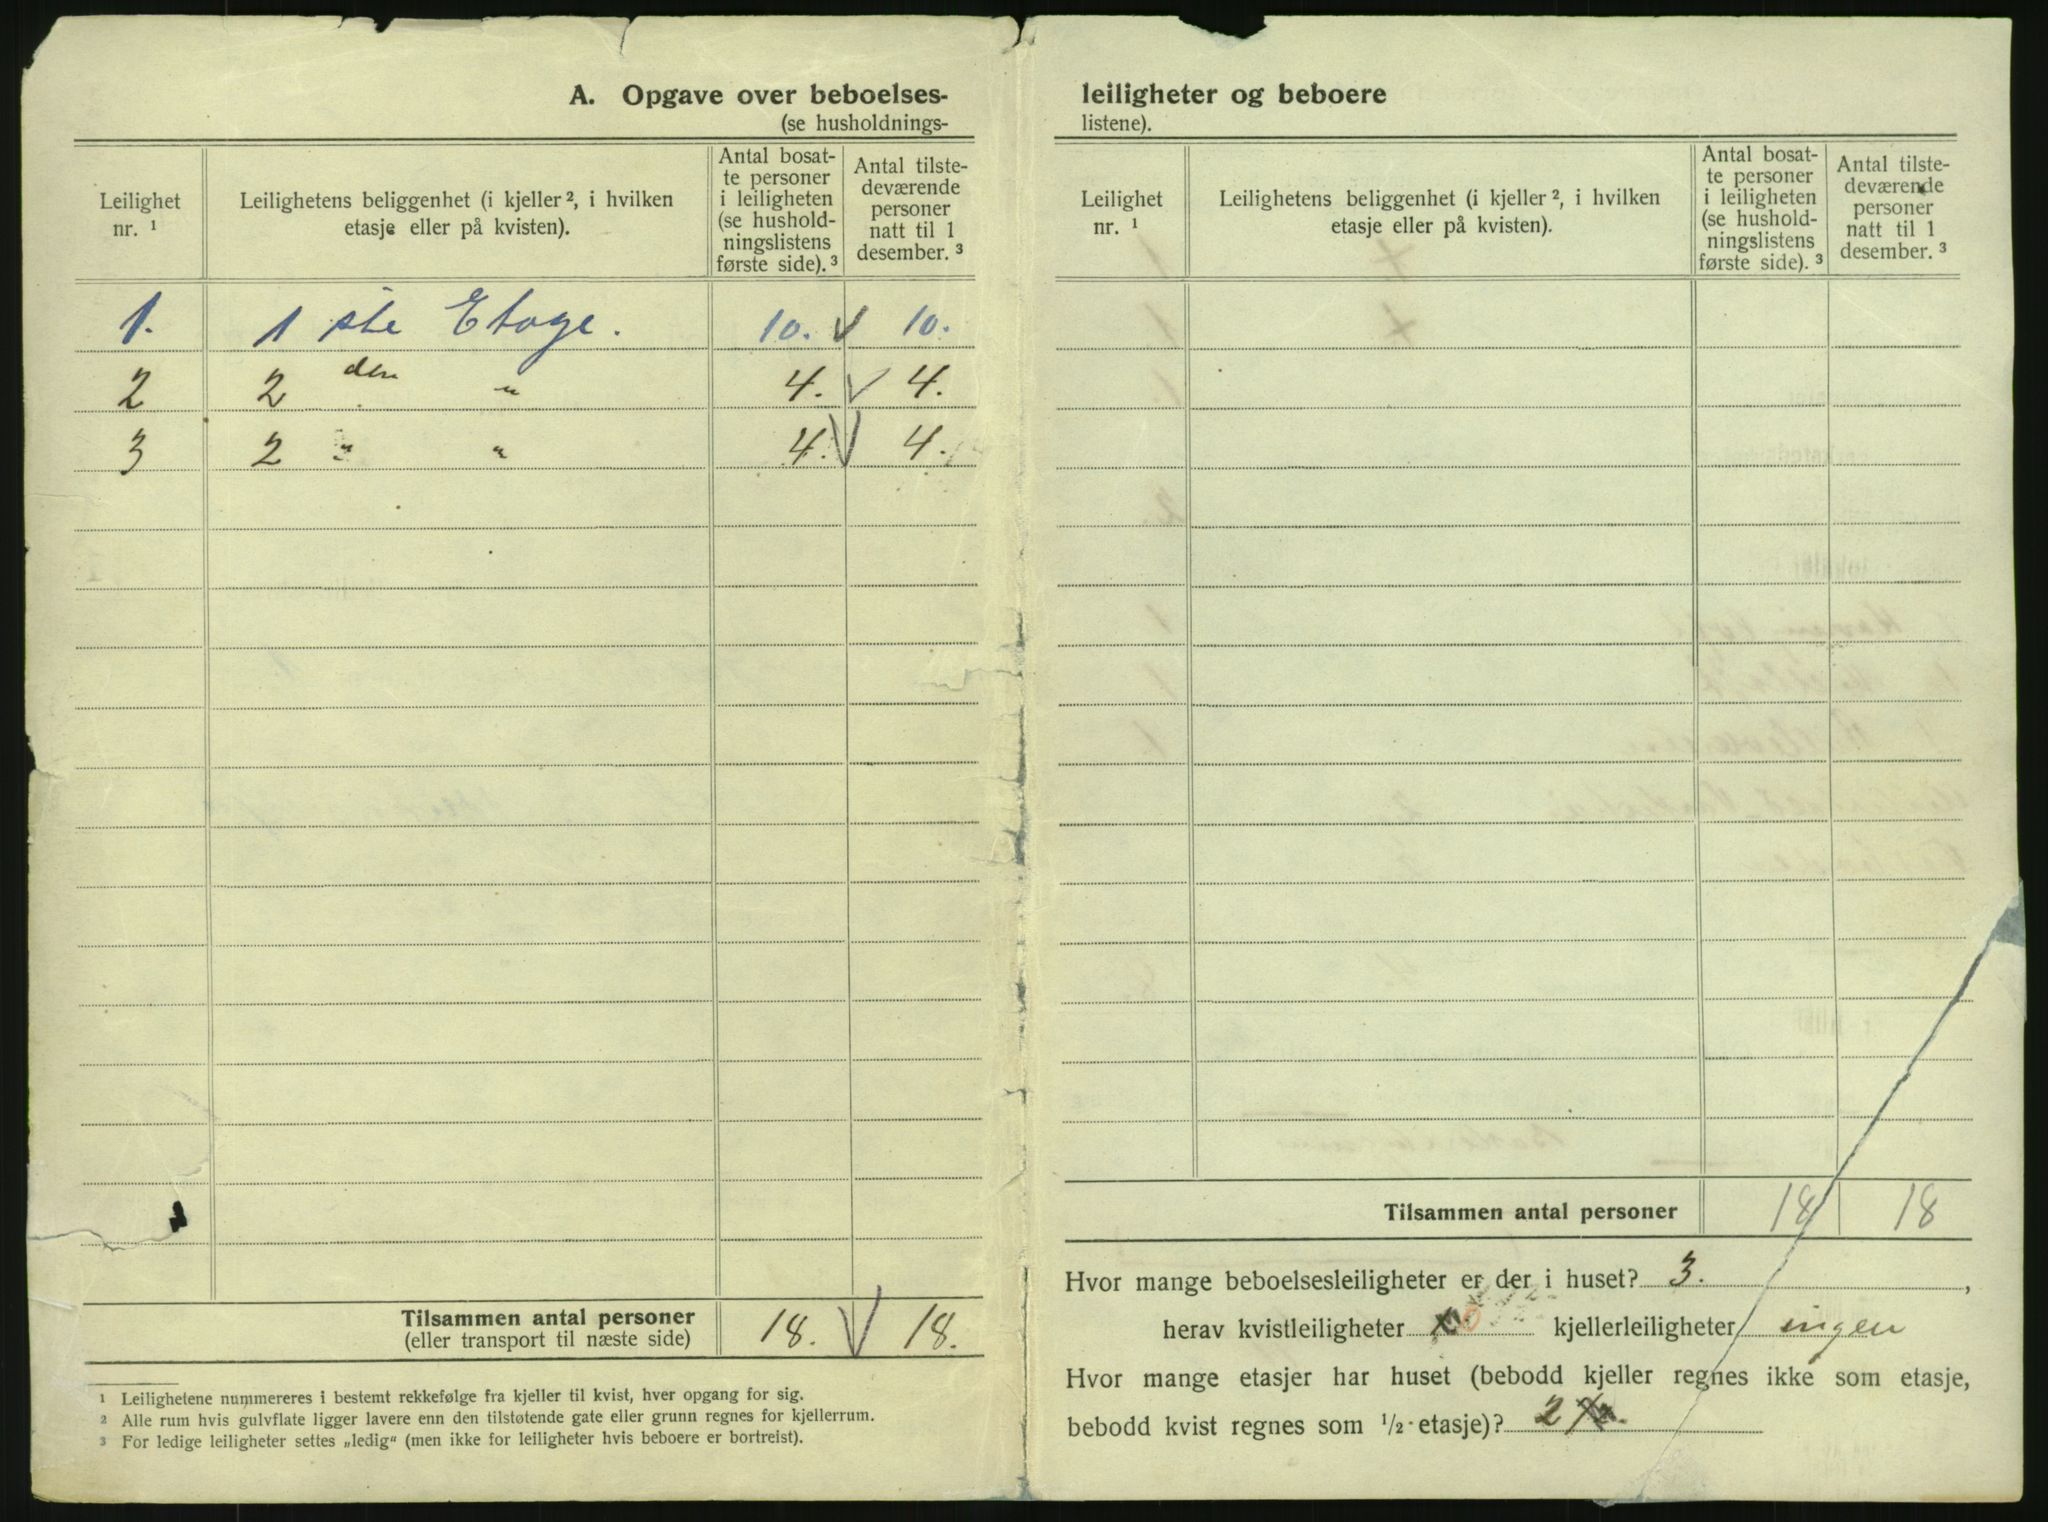 A. Opgave over beboelses-
(se husholdnings-
Leilighet nr. ¹
Leilighetens beliggenhet (i kjeller ², i hvilken etasje eller på kvisten).
Antal bosat-
te personer
i leiligheten
(se hushold-
ningslistens
første side). ³
Antal tilste-
deværende
personer
natt til 1
desember. ³
1. 1 ste Etage. 10. 10.
2 2 den " 4. 4.
3 2 " " 4. 4.
Tilsammen antal personer 18. 18.
(eller transport til næste side)
¹ Leilighetene nummereres i bestemt rekkefølge fra kjeller til kvist, hver opgang for sig.
² Alle rum hvis gulvflate ligger lavere enn den tilstøtende gate eller grunn regnes for kjellerrum.
³ For ledige leiligheter settes „ledig“ (men ikke for leiligheter hvis beboere er bortreist).
leiligheter og beboere
listene).
Leilighet nr. ¹
Leilighetens beliggenhet (i kjeller ², i hvilken etasje eller på kvisten).
Antal bosat-
te personer
i leiligheten
(se hushold-
ningslistens
første side). ³
Antal tilste-
deværende
personer
natt til 1
desember. ³
Tilsammen antal personer 18 18
Hvor mange beboelsesleiligheter er der i huset? 3.,
herav kvistleiligheter 0 kjellerleiligheter ingen
Hvor mange etasjer har huset (bebodd kjeller regnes ikke som etasje,
bebodd kvist regnes som 1/2-etasje)? 2